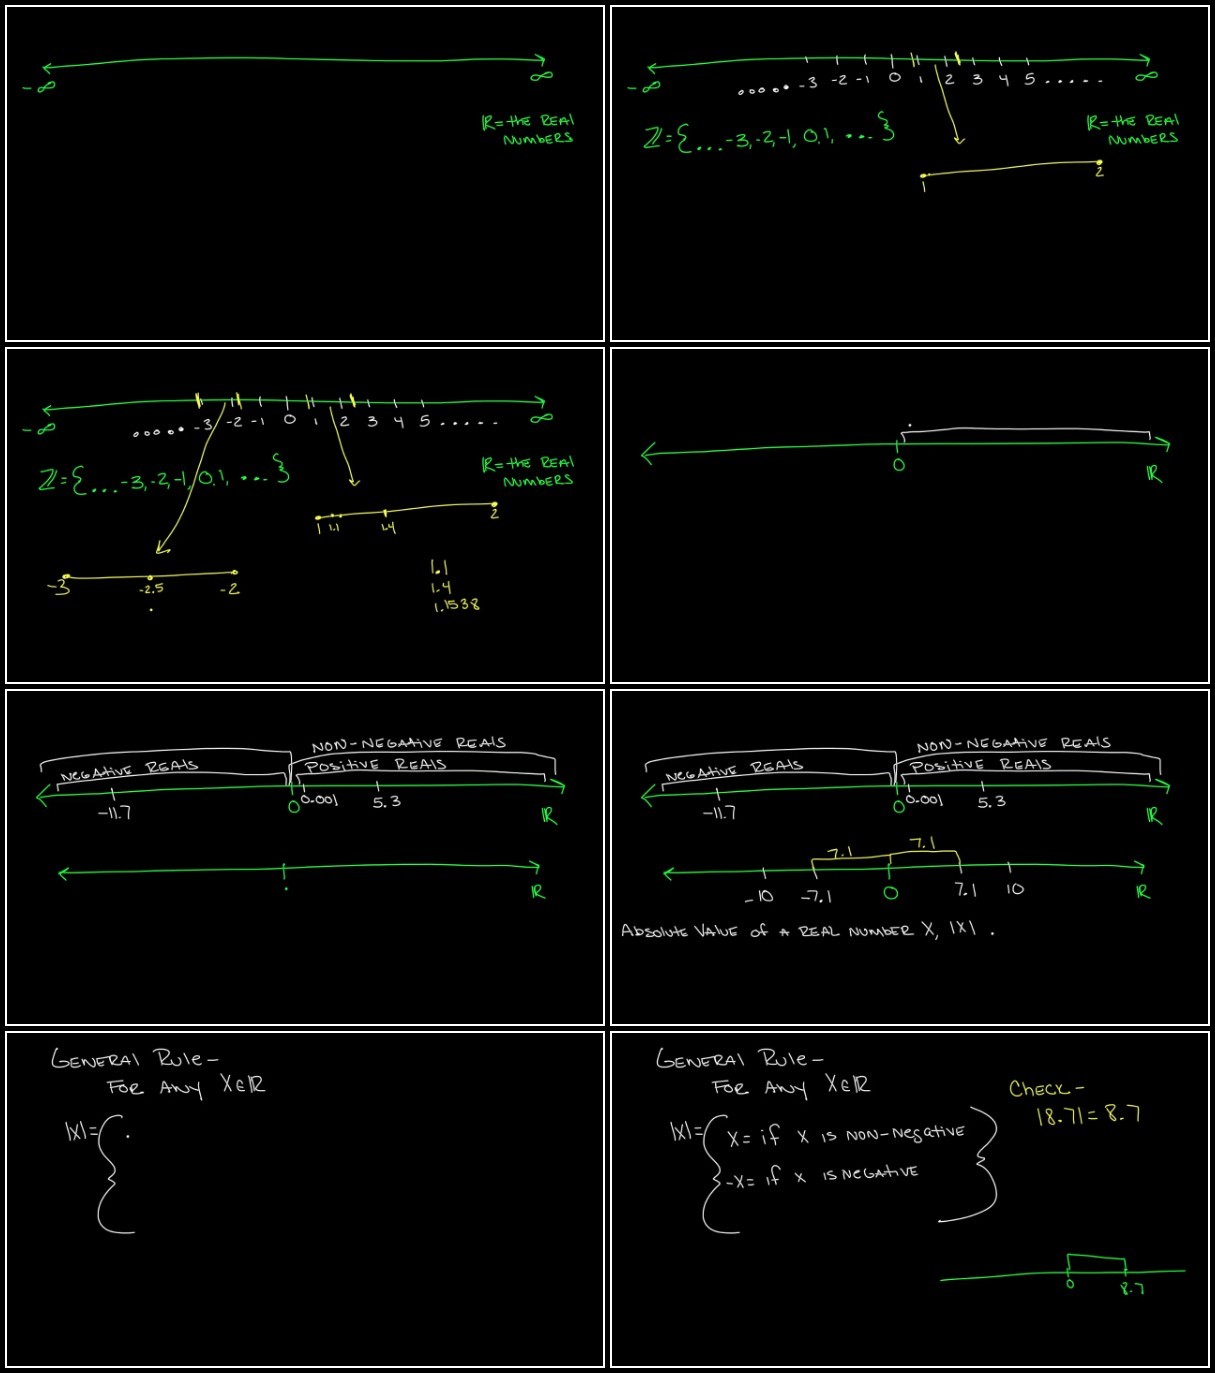 -∞ ∞
ℝ = the REAL
NUMBERS
-3 -2 -1 0 1 2 3 4 5 .....
-∞ ∞
ℤ={...-3,-2,-1,0,1,...}
ℝ = the REAL
NUMBERS
1 2
-3 -2 -1 0 1 2 3 4 5 .....
-∞ ∞
ℤ={...-3,-2,-1,0,1,...}
ℝ = the REAL
NUMBERS
1 1.1 1.4 2
-3 -2.5 -2
1.1
1.4
1.1538
0
ℝ
NON-NEGATIVE REALS
NEGATIVE REALS POSITIVE REALS
-11.7 0 0.001 5.3
ℝ
ℝ
NON-NEGATIVE REALS
NEGATIVE REALS POSITIVE REALS
-11.7 0 0.001 5.3
ℝ
7.1 7.1
-10 -7.1 0 7.1 10 ℝ
Absolute Value of a REAL NUMBER X, |X| .
GENERAL Rule-
FOR ANY X∈ℝ
|X|={
GENERAL Rule-
FOR ANY X∈ℝ
|X|={ X= if X is NON-Negative }
-X= if X is NEGATIVE
Check-
|8.7|=8.7
0 8.7